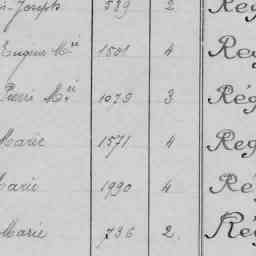 Joseph 589 2 Reg
Eugene M.ie 1501 4 Reg
Pierre M.ie 1079 3 Rég
Marie 1571 4 Reg
Marie 1990 4 Ré
Marie 736 2. Rég